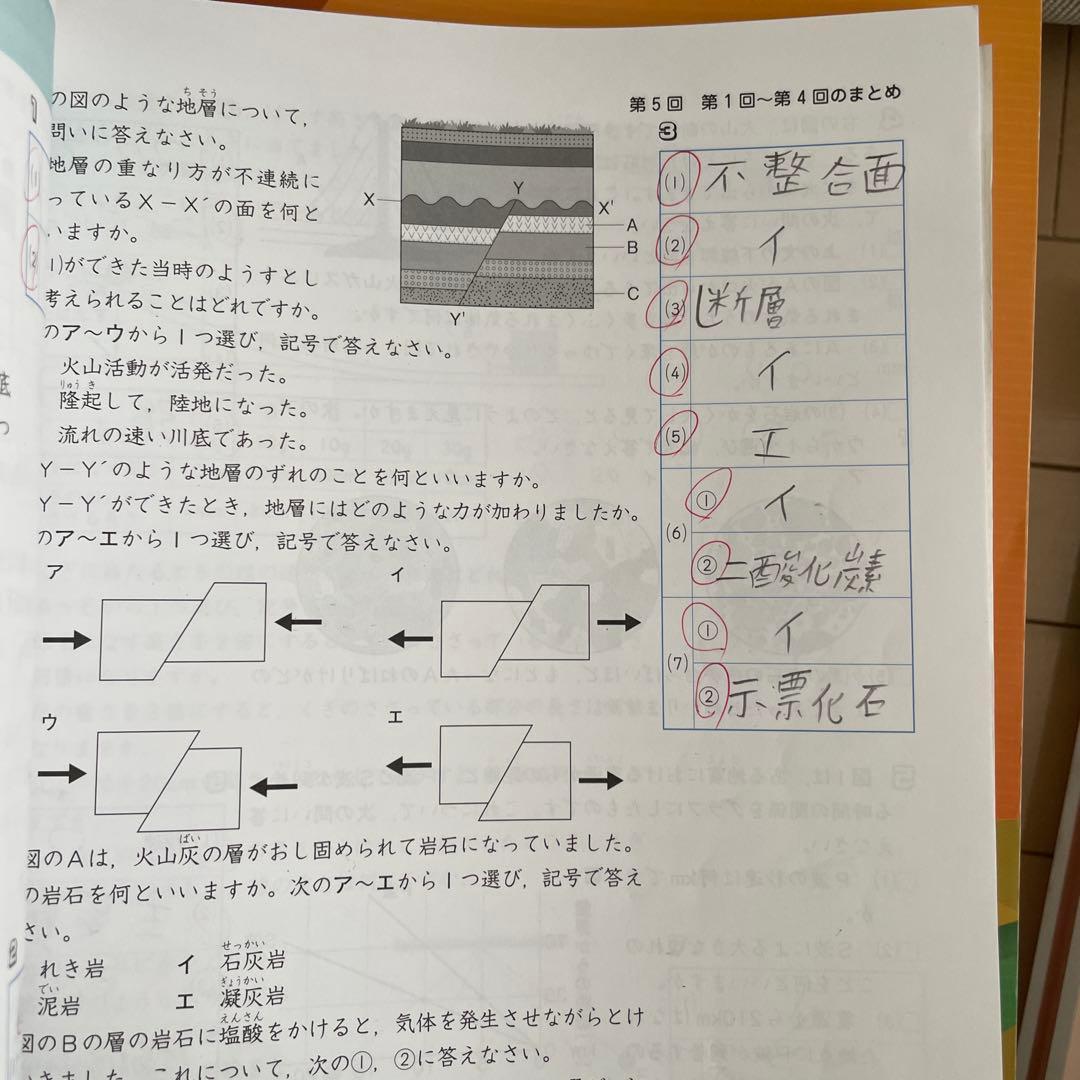 の図のような地層について,
問いに答えなさい。
地層の重なり方が不連続に
っているX－X´の面を何と
いますか。
1)ができた当時のようすとし
考えられることはどれですか。
のア～ウから1つ選び, 記号で答えなさい。
火山活動が活発だった。
隆起して, 陸地になった。
流れの速い川底であった。
Y－Y´のような地層のずれのことを何といいますか。
Y－Y´ができたとき, 地層にはどのような力が加わりましたか。
のア～エから1つ選び, 記号で答えなさい。
ア
イ
ウ
エ
図のAは, 火山灰の層がおし固められて岩石になっていました。
の岩石を何といいますか。次のア～エから1つ選び, 記号で答え
さい。
れき岩 イ 石灰岩
泥岩 エ 凝灰岩
図のBの層の岩石に塩酸をかけると, 気体を発生させながらとけ
いきました。これについて, 次の①, ②に答えなさい。
X
Y
X'
A
B
C
Y'
第5回 第1回～第4回のまとめ
3
(1) 不整合面
(2) イ
(3) 断層
(4) イ
(5) エ
(6)
① イ
② 二酸化炭素
(7)
① イ
② 示票化石